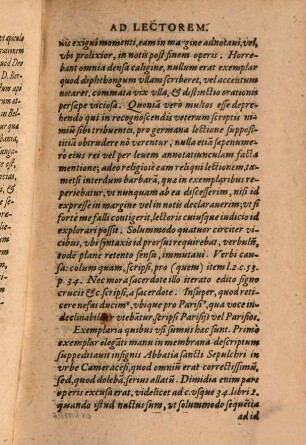 AD LECTOREM.
nis exigui momenti, eam in margine adnotaui, vel,
vbi prolixior, in notis post finem operis. Horre-
bant omnia densa caligine, nullum erat exemplar
quod diphthongum vllam scriberet, vel accentum
notaret, commata vix vlla, & distinctio orationis
persæpe viciosa. Quoniã verò multos esse deprehen-
do qui in recognoscendis veterum scriptis ni-
miũ sibi tribuentes, pro germana lectione suppositi-
tiã obtrudere nõ verentur, nulla etiã sæpenume-
rò eius rei vel per leuem annotatiunculam facta
mentione; adeo religiosè eam reliqui lectionem, ta-
metsi interdum barbarã, quæ in exemplaribus re-
periebatur, vt nunquam ab ea discesserim, nisi id ex-
presse in margine vel in notis declarauerim; vt si
forte me falli contigerit, lectoris cuiusque iudicio id
explorari possit. Solummodo quatuor circiter vi-
cibus, vbi syntaxis id prorsus requirebat, verbulũ,
eodẽ plane retento sensu, immutaui. Verbi cau-
sa: colum quam, scripsi, pro (quem) item l.2.c.53.
p.34. Nec mora sacerdote illo iterato edito signo
crucis &c. scripsi, a sacerdote. Insuper, quod reti-
cere nefas ducim', vbique pro Parisi', qua voce in-
declinabili vtebãtur, scripsi Parisijs vel Parisios.
Exemplaria quibus vsi sumus hæc sunt. Primò
exemplar elegãti manu in membrana descriptum
suppeditauit insignis Abbatia sancti Sepulchri in
vrbe Cameracẽsi, quod omniũ erat correctissimũ,
sed, quod dolebã, serius allatũ. Dimidia enim pars
operis excusa erat, videlicet ad c.vsque 34. libri 2.
quando istud nactus sum, vt solummodo sequẽtia
ad id